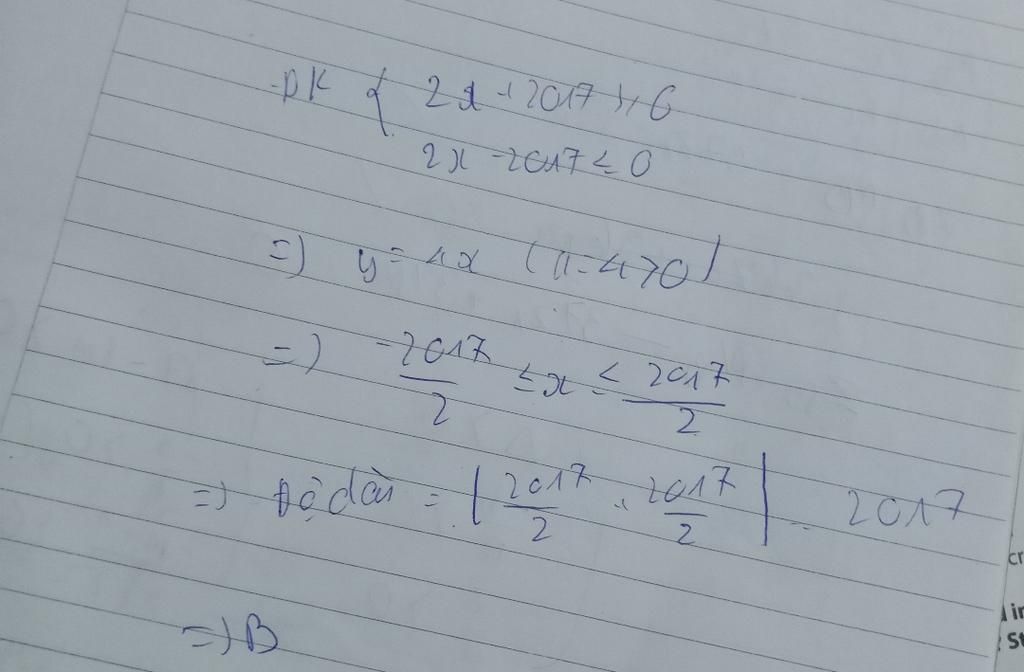 ĐK { 2x + 2017 ≥ 0
2x - 2017 ≤ 0
=) y = 4x (a = 4 > 0)
=) -2017/2 ≤ x ≤ 2017/2
=) Độ dài = | 2017/2 + 2017/2 | = 2017
=) B